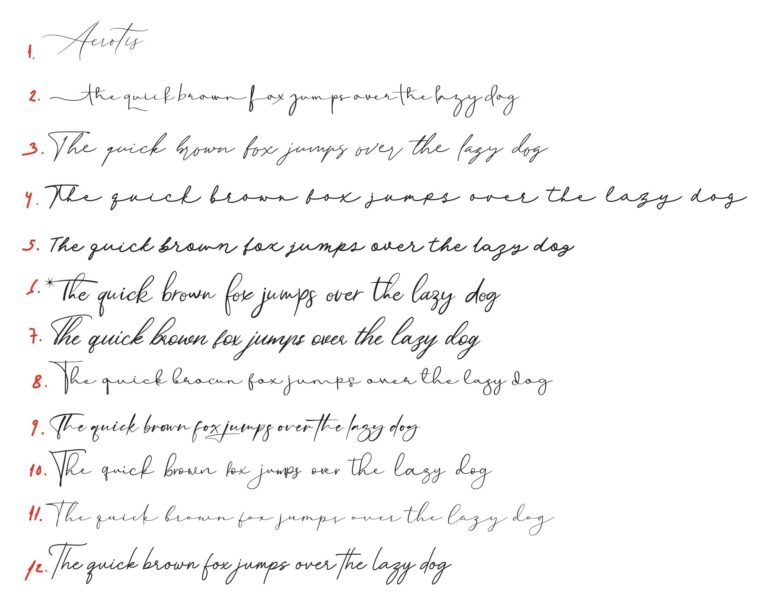 1. Aerotis
2. the quick brown fox jumps over the lazy dog
3. The quick brown fox jumps over the lazy dog
4. The quick brown fox jumps over the lazy dog
5. The quick brown fox jumps over the lazy dog
6. *The quick brown fox jumps over the lazy dog
7. The quick brown fox jumps over the lazy dog
8. The quick brown fox jumps over the lazy dog
9. The quick brown fox jumps over the lazy dog
10. The quick brown fox jumps over the lazy dog
11. The quick brown fox jumps over the lazy dog
12. The quick brown fox jumps over the lazy dog